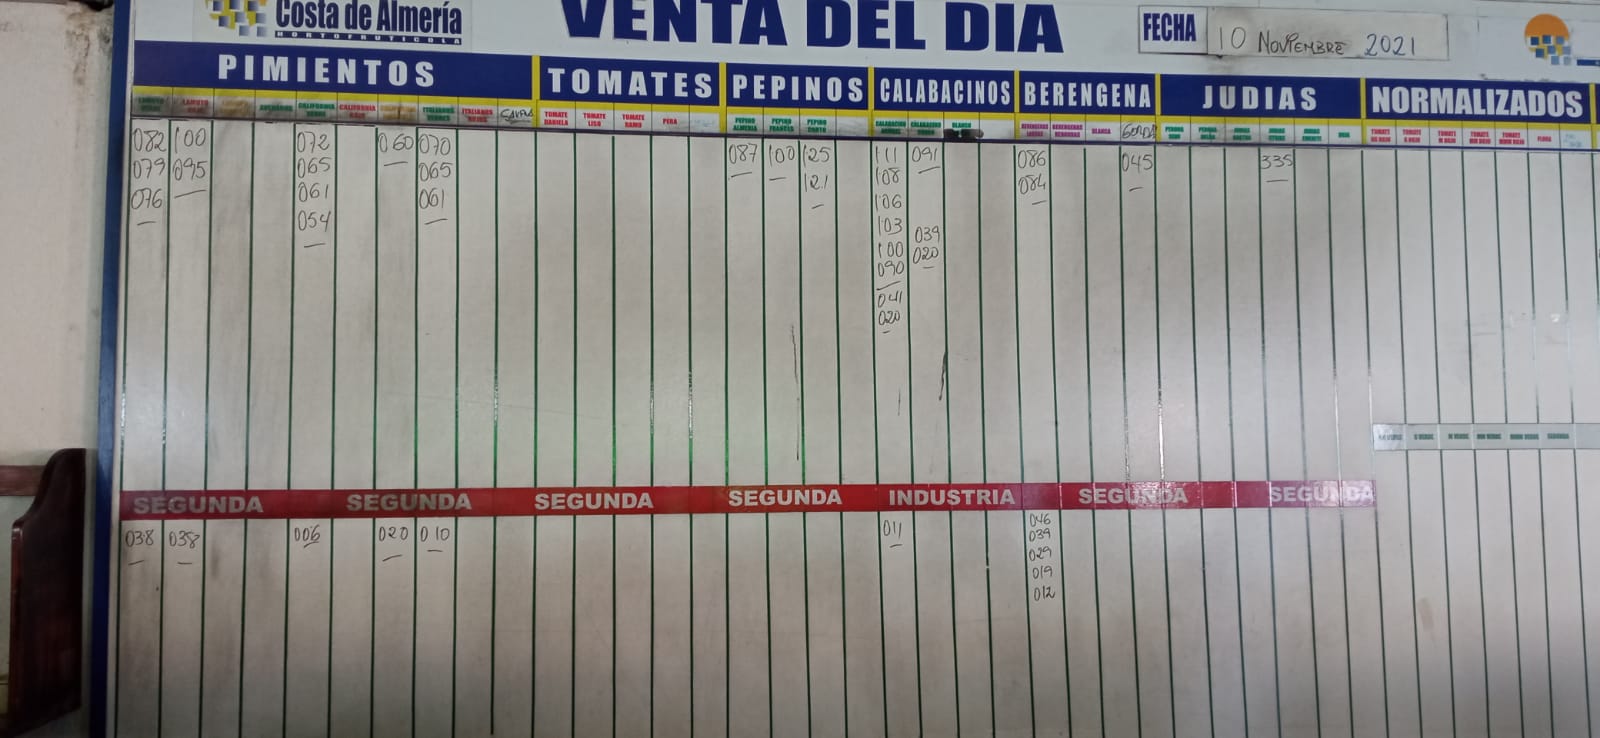 Costa de Almería
HORTOFRUTICOLA
VENTA DEL DIA
FECHA 10 NOVIEMBRE 2021
PIMIENTOS TOMATES PEPINOS CALABACINOS BERENGENA JUDIAS NORMALIZADOS
CALIFORNIA
CALIFORNIA
ITALIANOS VERDES
ITALIANOS
TOMATE DANIELA
TOMATE LISO
TOMATE RAMO
PERA
PEPINO ALMERIA
PEPINO FRANCES
PEPINO CORTO
CALABACIN
BLANCO
BERENGENAS
BERENGENAS
BLANCA
GORDA
082 100 072 060 070 087 100 125 111 091 086 045 335
079 095 065 065 121 108 084
076 061 061 106
054 103 039
100 020
090
041
020
SEGUNDA SEGUNDA SEGUNDA SEGUNDA INDUSTRIA SEGUNDA SEGUNDA
038 038 006 020 010 011 046
039
029
019
012